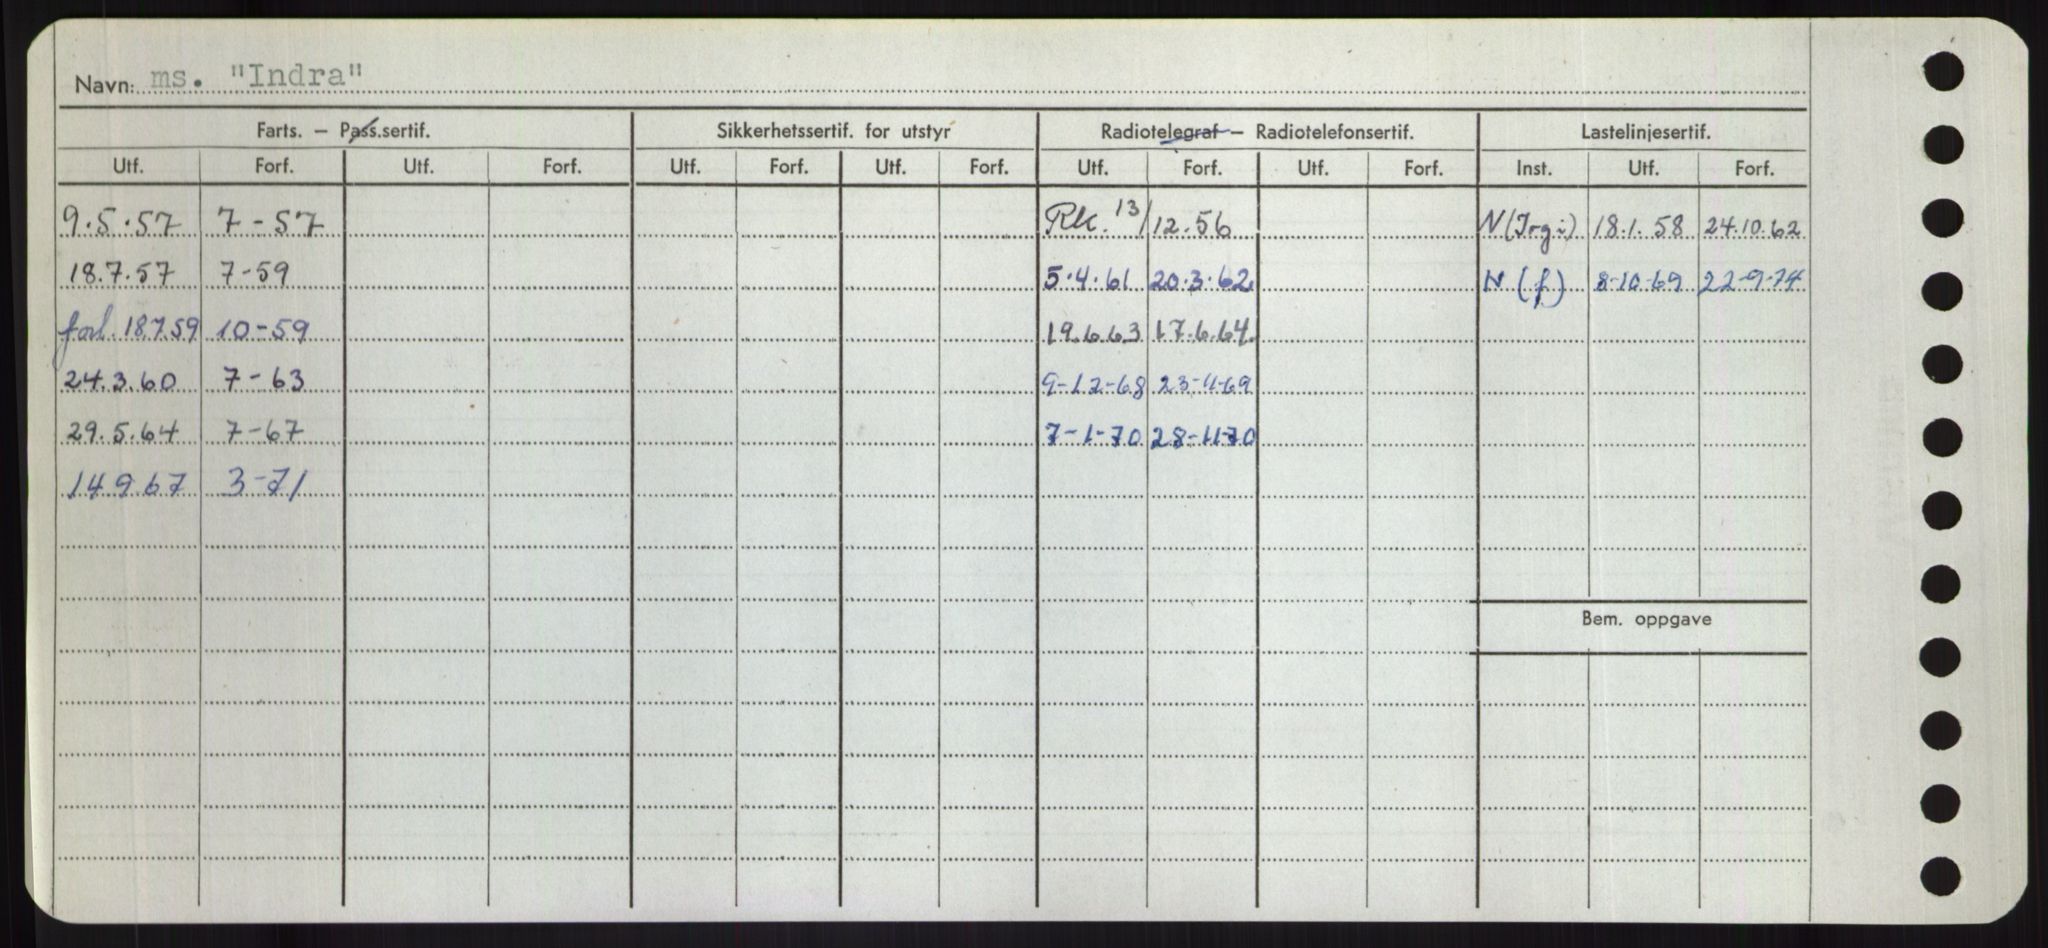 Navn: ms. "Indra"
Farts. – Pass.sertif. Sikkerhetssertif. for utstyr Radiotelegraf – Radiotelefonsertif. Lastelinjesertif.
Utf. Forf. Utf. Forf. Utf. Forf. Utf. Forf. Utf. Forf. Utf. Forf. Inst. Utf. Forf.
9.5.57 7-57 Rk. 13/12.56 N (Irgi) 18.1.58 24.10.62
18.7.57 7-59 5.4.61 20.3.62 N (f) 8-10-69 22-9-74
forl. 18.7.59 10-59 19.6.63 17.6.64
24.3.60 7-63 9-12-68 23-11-69
29.5.64 7-67 7-1-70 28-11-70
14.9.67 3-71
Bem. oppgave